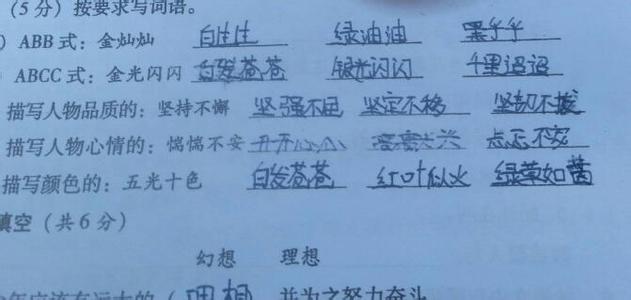 （5 分）按要求写词语。
）ABB 式：金灿灿 白 绿油油 黑乎乎
ABCC 式：金光闪闪 白发苍苍 银光闪闪 千里迢迢
描写人物品质的：坚持不懈 坚强不屈 坚定不移 坚韧不拔
描写人物心情的：惴惴不安 开开心心 高高兴兴 忐忑不安
描写颜色的：五光十色 白发苍苍 红叶似火 绿草如茵
填空（共 6 分）
幻想 理想
年应该有远大的（ 理想 并为之努力奋斗